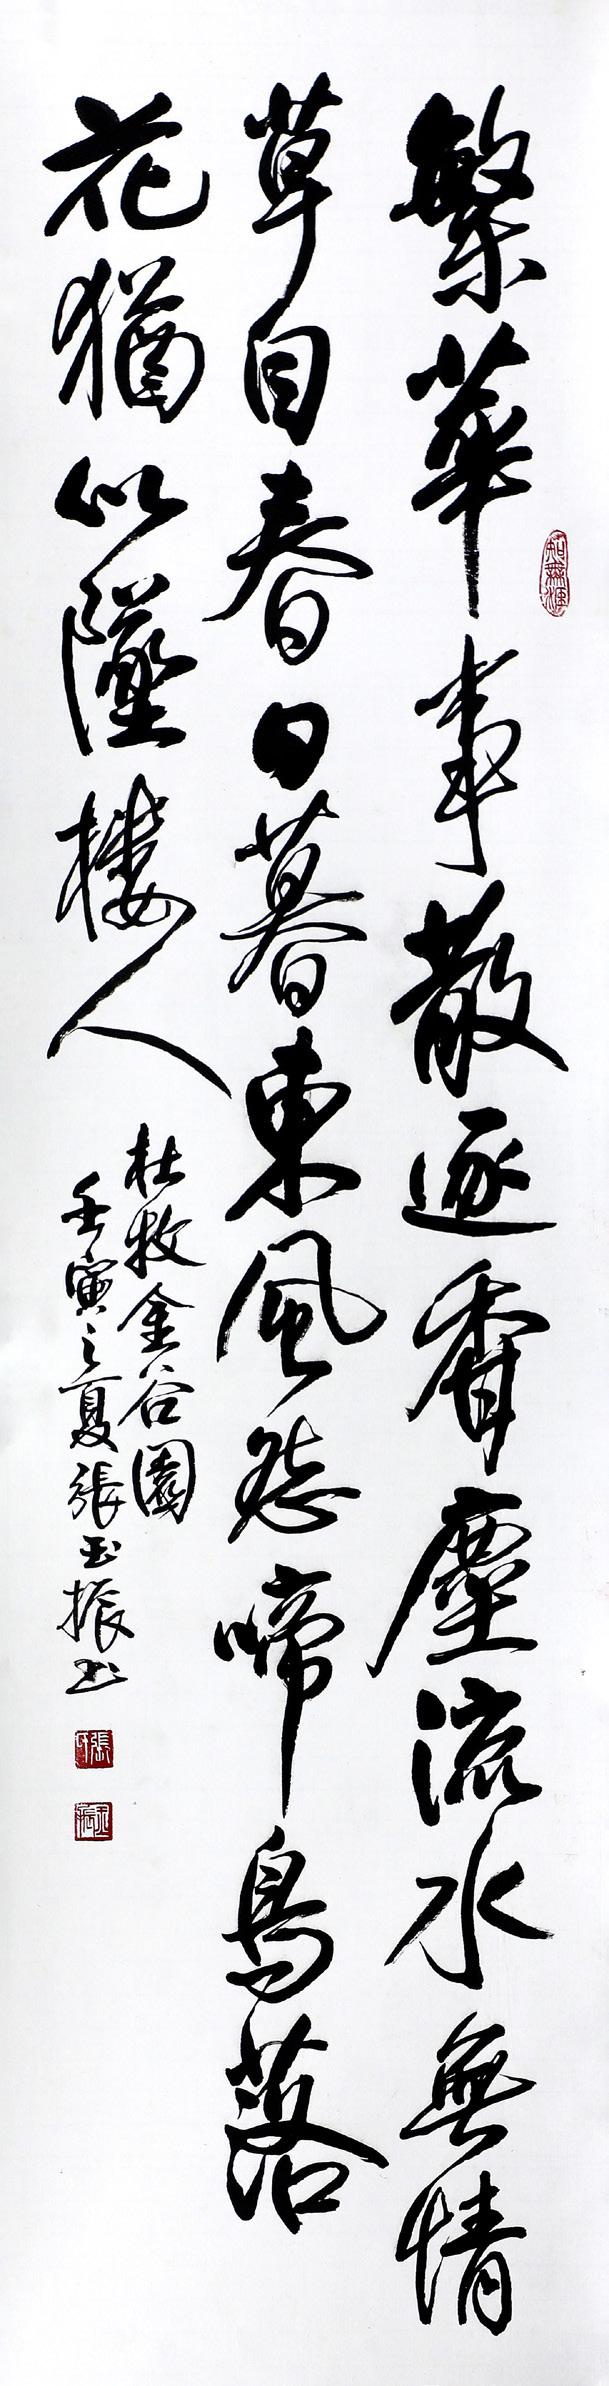 繁華事散逐香塵流水無情
草自春日暮東風怨啼鳥落
花猶似墜樓人
杜牧金谷園
壬寅之夏張玉振书
知無涯
張氏
玉振